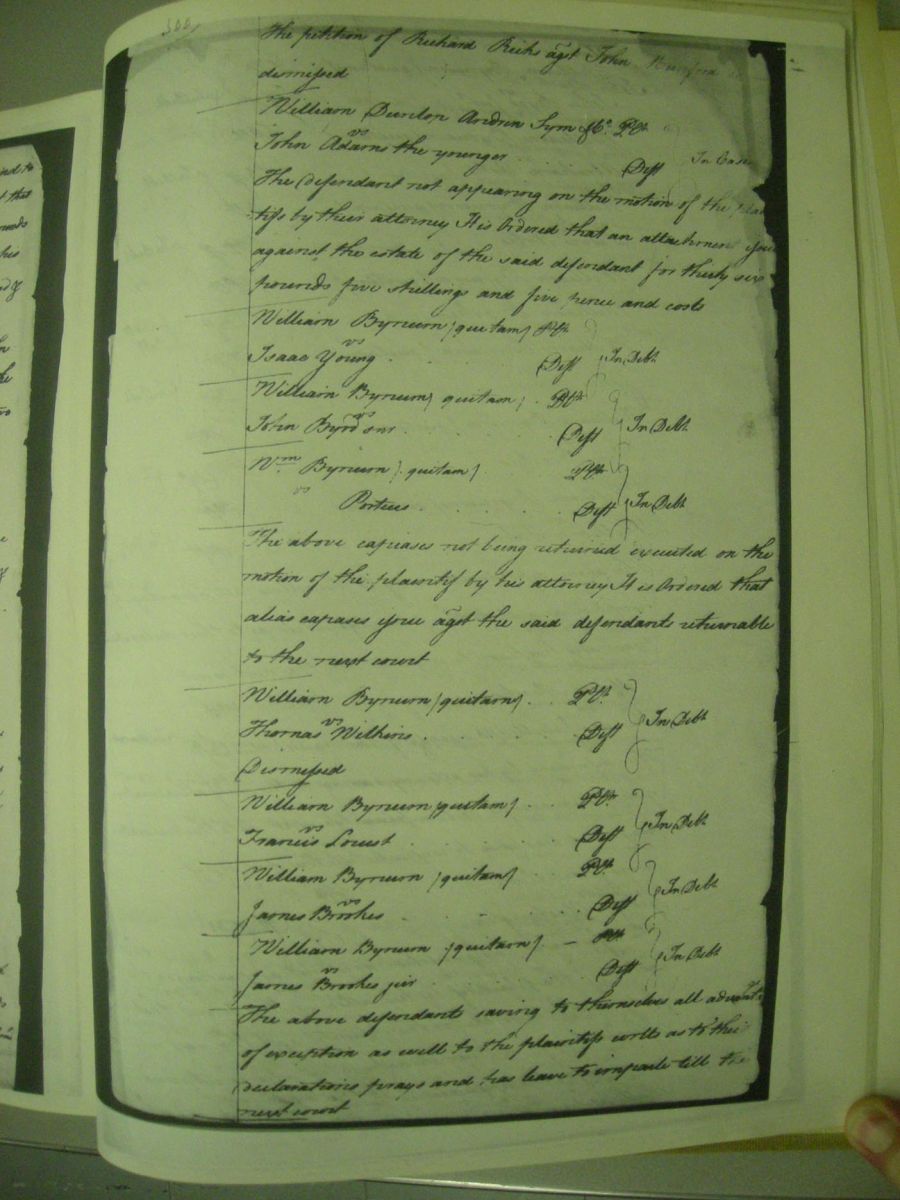 500
The petition of Richard Ricks agst John
dismissed
William Dunlop Andrew Sym & Co Plt.
vs
John Adams the younger Deft In Case
The defendant not appearing on the motion of the plain
tifs by their attorney It is Ordered that an attachment issue
against the estate of the said defendant for thirty six
pounds five shillings and five pence and costs
William Bynum (quitam) Plt.
vs
Isaac Young Deft In Debt
William Bynum (quitam) Plt.
vs
John Byrd snr Deft In Debt
Wm Bynum (quitam) Plt.
vs
Porteus Deft In Debt
The above capiases not being returned executed on the
motion of the plaintif by his attorney It is Ordered that
alias capases issue agst the said defendants returnable
to the next court
William Bynum (quitam) Plt.
vs
Thomas Wilkins Deft In Debt
Dismissed
William Bynum (quitam) Plt.
vs
Francis Loust Deft In Debt
William Bynum (quitam) Plt.
vs
James Brookes Deft In Debt
William Bynum (quitam) Plt.
vs
James Brookes jur Deft In Debt
The above defendants saving to themselves all advant
of exception as well to the plaintifs writs as to their
declarations prays and has leave to imparle till the
next court